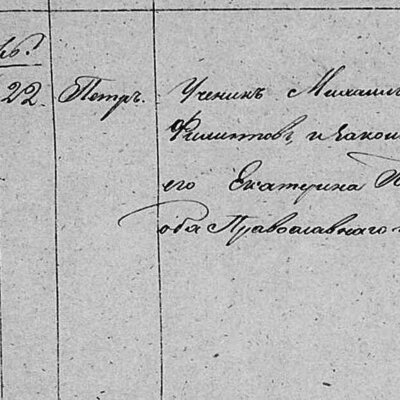 22. Петръ. Ученикъ Михаилъ
Филиптовъ, и закон
его Екатерина
оба Православнаго